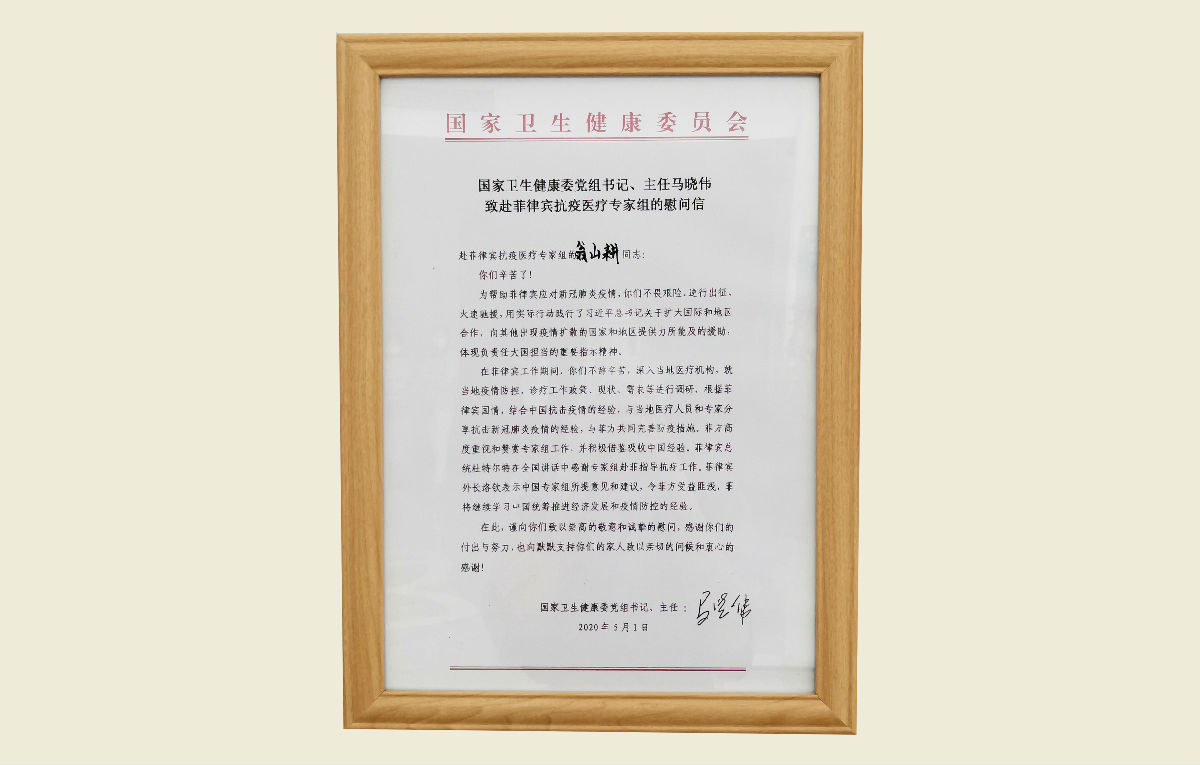 国家卫生健康委员会
国家卫生健康委党组书记、主任马晓伟
致赴菲律宾抗疫医疗专家组的慰问信
赴菲律宾抗疫医疗专家组的翁山耕同志：
你们辛苦了！
为帮助菲律宾应对新冠肺炎疫情，你们不畏艰险，逆行出征，
火速驰援，用实际行动践行了习近平总书记关于扩大国际和地区
合作，向其他出现疫情扩散的国家和地区提供力所能及的援助，
体现负责任大国担当的重要指示精神。
在菲律宾工作期间，你们不辞辛苦，深入当地医疗机构，就
当地疫情防控，诊疗工作政策、现状、需求等进行调研，根据菲
律宾国情，结合中国抗击疫情的经验，与当地医疗人员和专家分
享抗击新冠肺炎疫情的经验，与菲方共同完善防疫措施，菲方高
度重视和赞赏专家组工作，并积极借鉴吸收中国经验。菲律宾总
统杜特尔特在全国讲话中感谢专家组赴菲指导抗疫工作。菲律宾
外长洛钦表示中国专家组所提意见和建议，令菲方受益匪浅，菲
将继续学习中国统筹推进经济发展和疫情防控的经验。
在此，谨向你们致以崇高的敬意和诚挚的慰问，感谢你们的
付出与努力，也向默默支持你们的家人致以亲切的问候和衷心的
感谢！
国家卫生健康委党组书记、主任：马晓伟
2020年5月1日